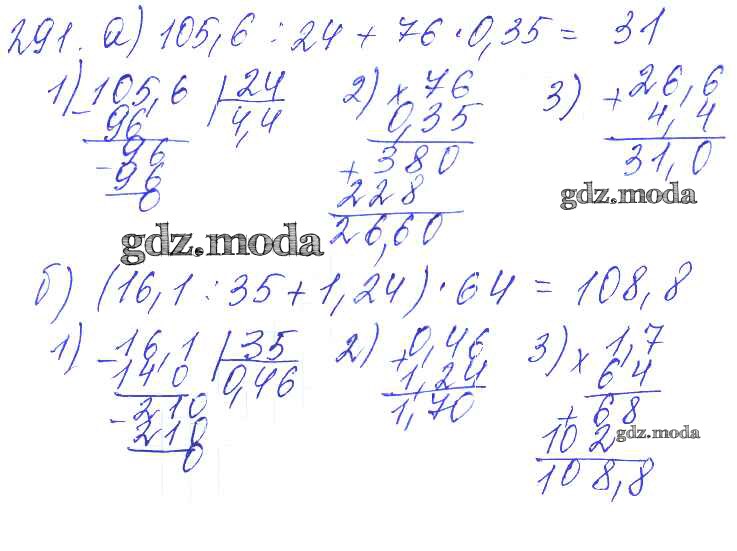 291. а) 105,6 : 24 + 76 · 0,35 = 31
1) 105,6 | 24 2) × 76 3) + 26,6
- 96 4,4 0,35 4,4
96 + 380 31,0
- 96 228 gdz.moda
0 26,60
gdz.moda
б) (16,1 : 35 + 1,24) · 64 = 108,8
1) - 16,1 | 35 2) + 0,46 3) × 1,7
140 0,46 1,24 64
- 210 1,70 + 68
210 102 gdz.moda
0 108,8